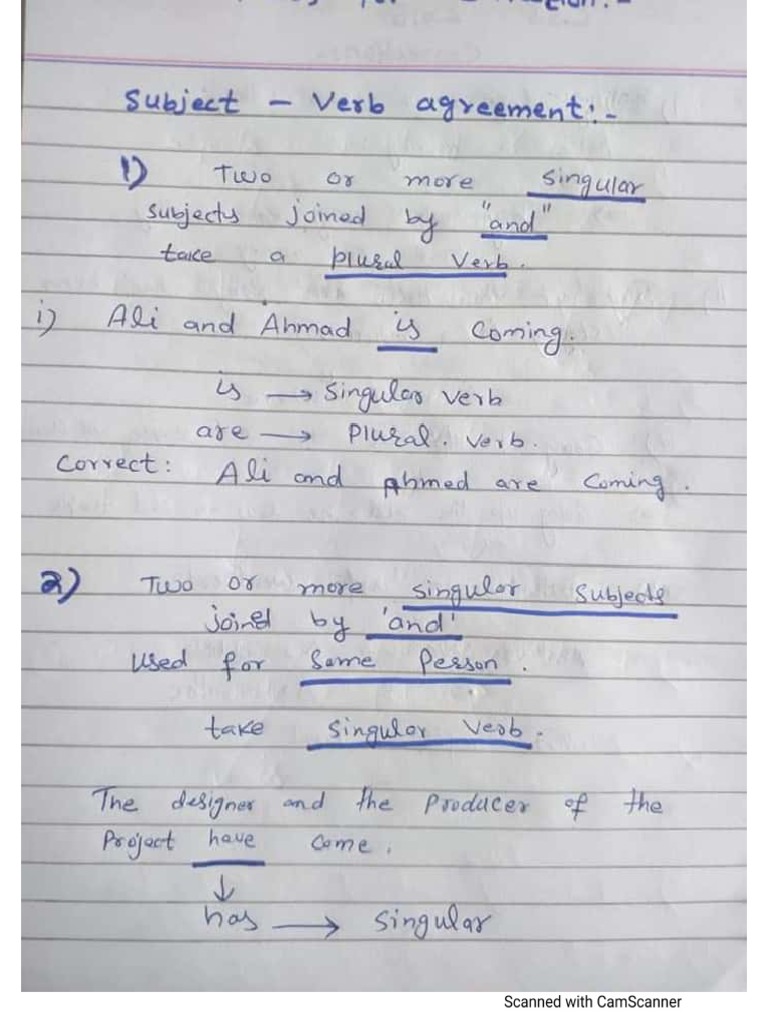 Subject - Verb agreement:-
1) Two or more singular
subjects joined by "and"
take a plural verb.
i) Ali and Ahmad is coming.
is → singular verb
are → Plural. verb.
Correct: Ali and Ahmed are coming.
2) Two or more singular subjects
joined by 'and'
used for same person.
take singular verb.
The designer and the producer of the
Project have come.
↓
has → singular
Scanned with CamScanner